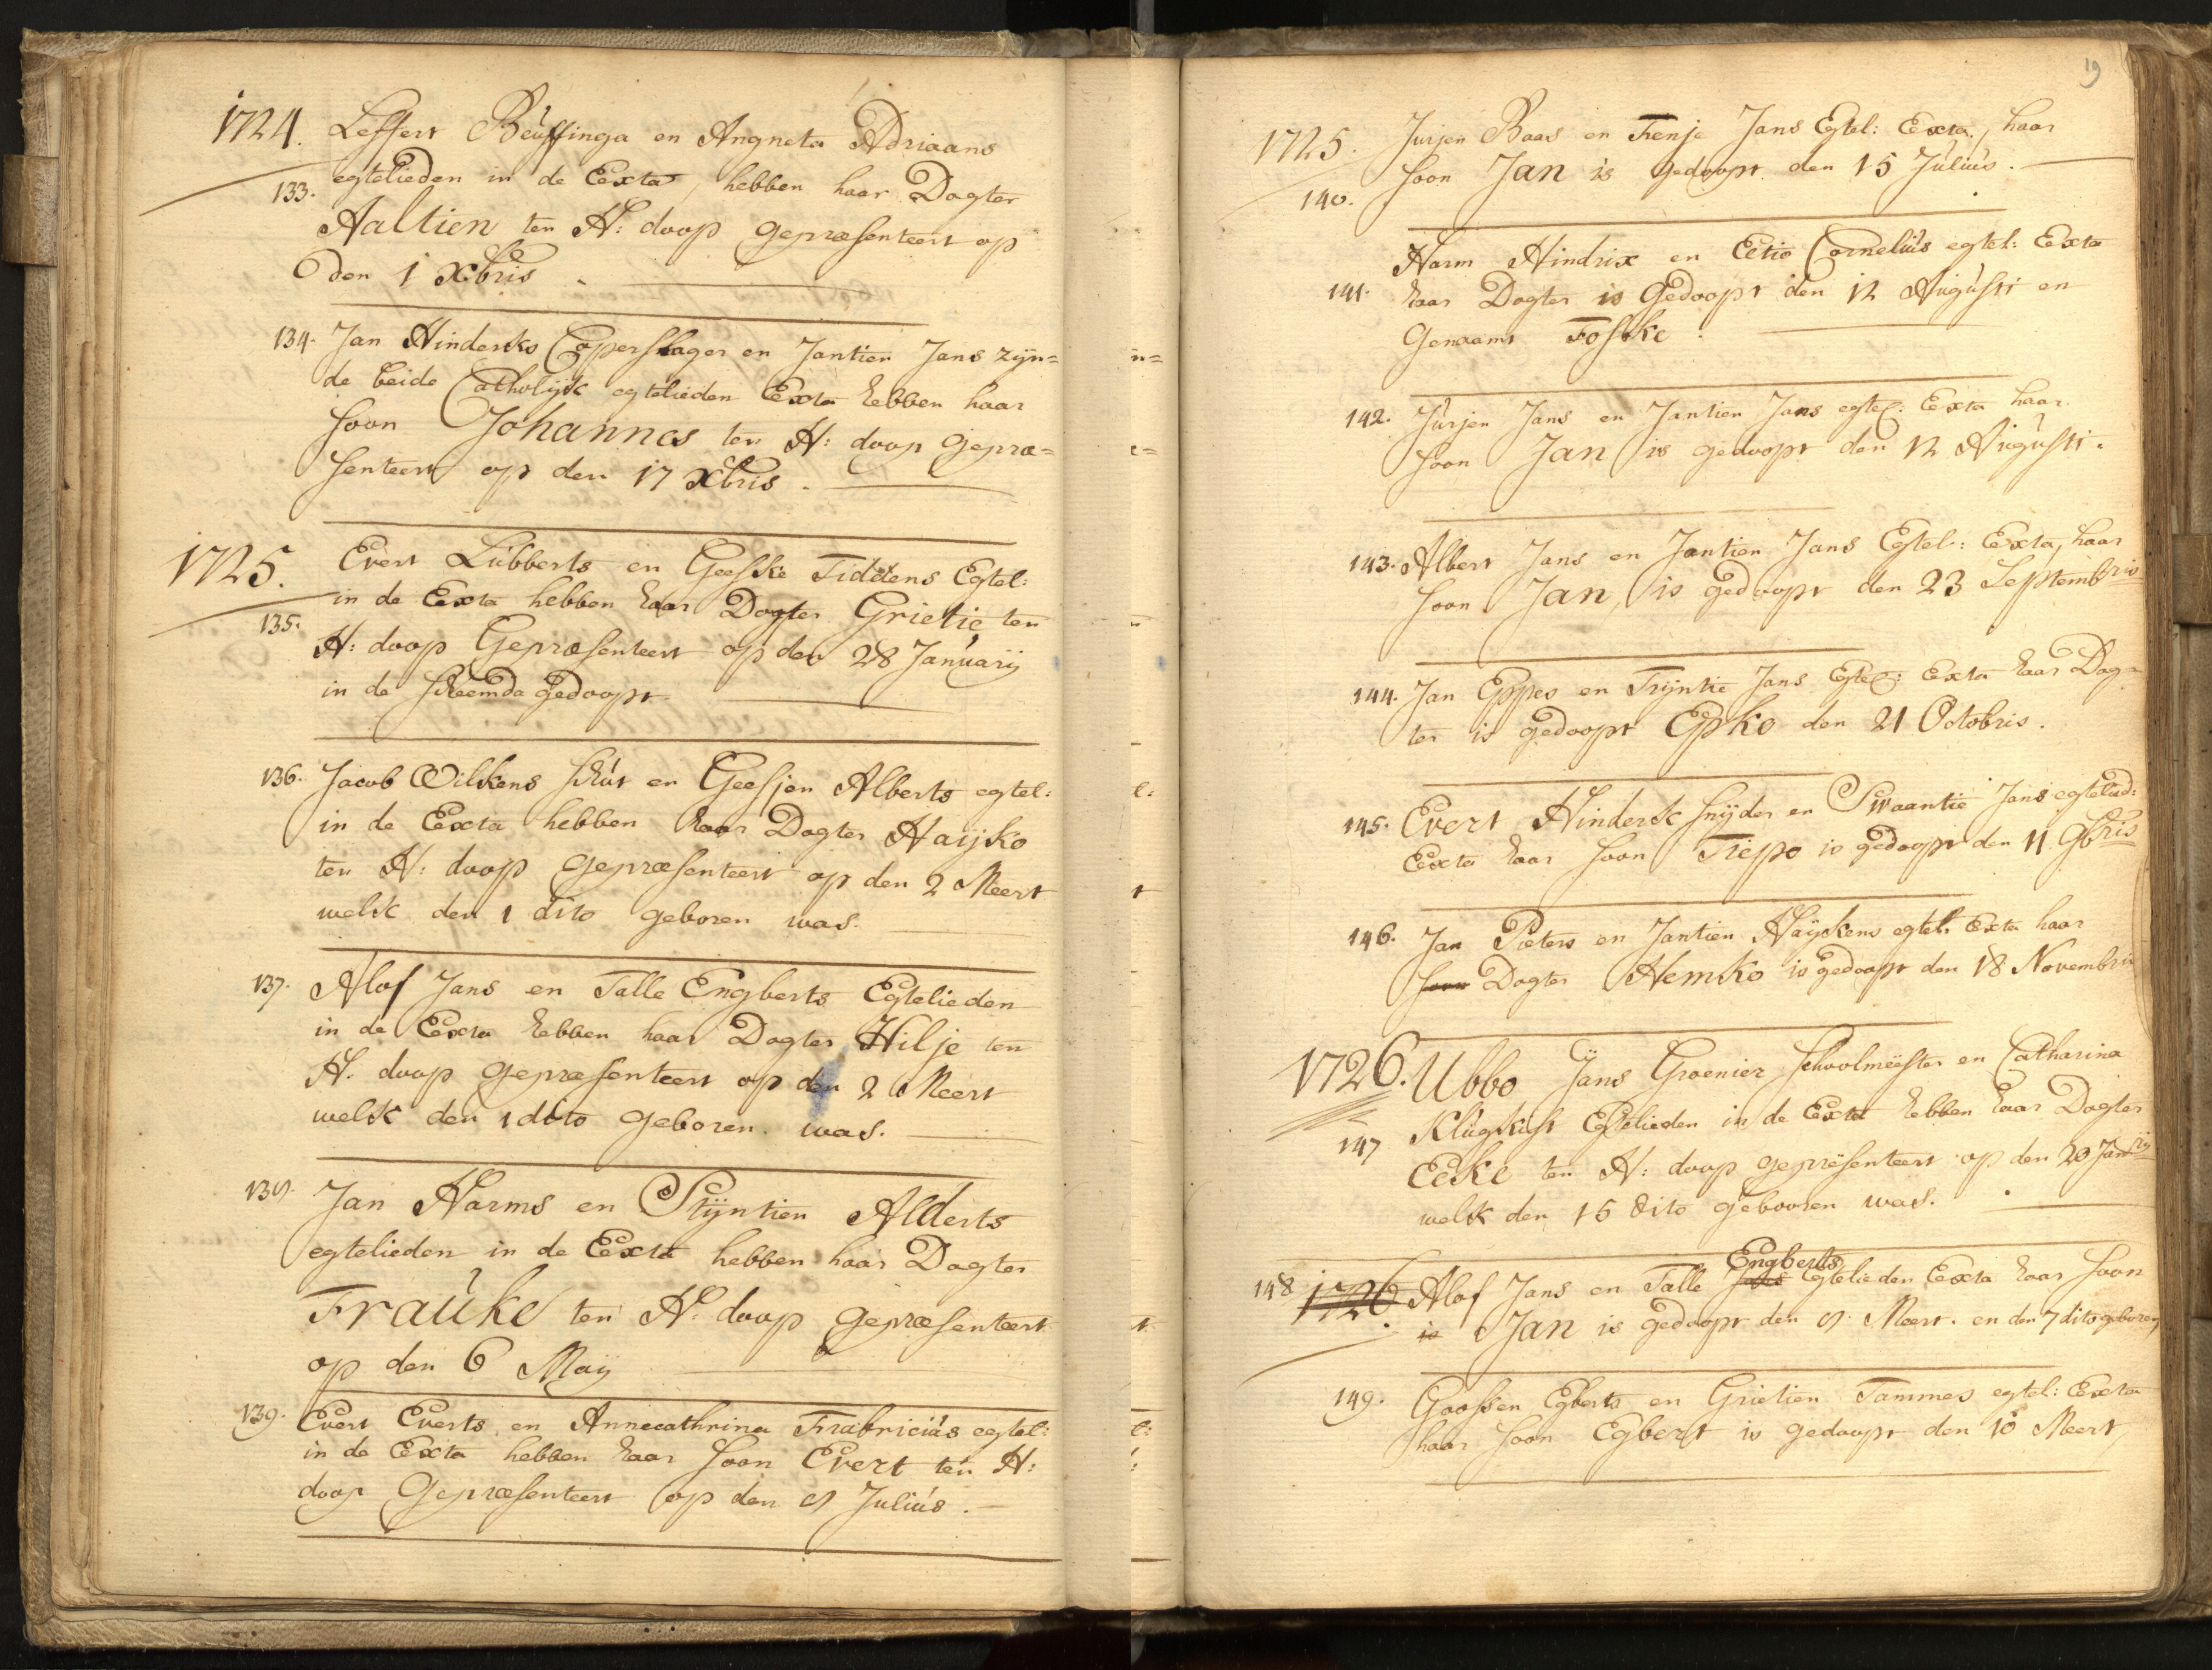 1724. Leffert Beuffinga en Angneta Adriaans
133. egtelieden in de Eexta, hebben haar Dogter
Aaltien ten H: doop gepræsenteert op
den 1 Xbris.
134. Jan Hinderks Coperslager en Jantien Jans zijn=
de beide Catholijk egtelieden Eexta hebben haar
soon Johannes ten H: doop gepræ=
senteert op den 17 Xbris.
1725. Evert Lubberts en Geeske Tiddens Egtel:
in de Eexta hebben haar Dogter Grietie ten
135. H: doop Gepræsenteert op den 28 Januarij
in de Scheemda gedoopt.
136. Jacob Wilkens Schut en Geesjen Alberts egtel:
in de Eexta hebben haar Dogter Haijko
ten H: doop gepræsenteert op den 2 Meert
welk den 1 dito geboren was.
137. Alof Jans en Talle Engberts Egtelieden
in de Eexta hebben haar Dogter Hilje ten
H. doop gepræsenteert op den 2 Meert
welk den 1 dito geboren was.
138. Jan Harms en Stijntien Alderts
egtelieden in de Eexta hebben haar Dogter
Frauke ten H: doop gepræsenteert
op den 6 Maij
139. Evert Everts en Annecathrina Frabricius egtel:
in de Exta hebben haar soon Evert ten H:
doop Gepræsenteert op den 9 Julius.
19
1725. Jurjen Baas en Trenje Jans Egtel: Eexta, haar
140. soon Jan is gedoopt den 15 Julius.
Harm Hindrix en Eetie Cornelius egtel: Exta
141. haar Dogter is Gedoopt den 12 Augusti en
Genaamt Foske.
142. Jurjen Jans en Jantien Jans egtel: Exta haar
soon Jan is gedoopt den 12 Augusti.
143. Albert Jans en Jantien Jans Egtel: Eexta, haar
soon Jan, is gedoopt den 23 Septembris
144. Jan Eppes en Trijntie Jans Egtel: Exta haar Dog=
ter is gedoopt Epko den 21 Octobris.
145. Evert Hinderk Snijder en Swaantie Jans egtelied:
Eexta haar soon Tiepo is gedoopt den 11 9bris
146. Jan Pieters en Jantien Haijckens egtel: Exta haar
soon Dogter Hemko is gedoopt den 18 Novembris
1726. Ubbo Jans Groenier Schoolmeester en Catharina
147 Klugkist Egtelieden in de Exta hebben haar Dogter
Eeke ten H: doop gepresenteert op den 20 Janrij
welk den 15 dito gebooren was.
Engberts
148 1726 Alof Jans en Talle Jans Egtelieden Eexta haar soon
is Jan is gedoopt den 9. Meert. en den 7 dito geboren
149. Goossen Egberts en Grietien Tammes egtel: Exta
haar soon Egbert is gedoopt den 10 Meert